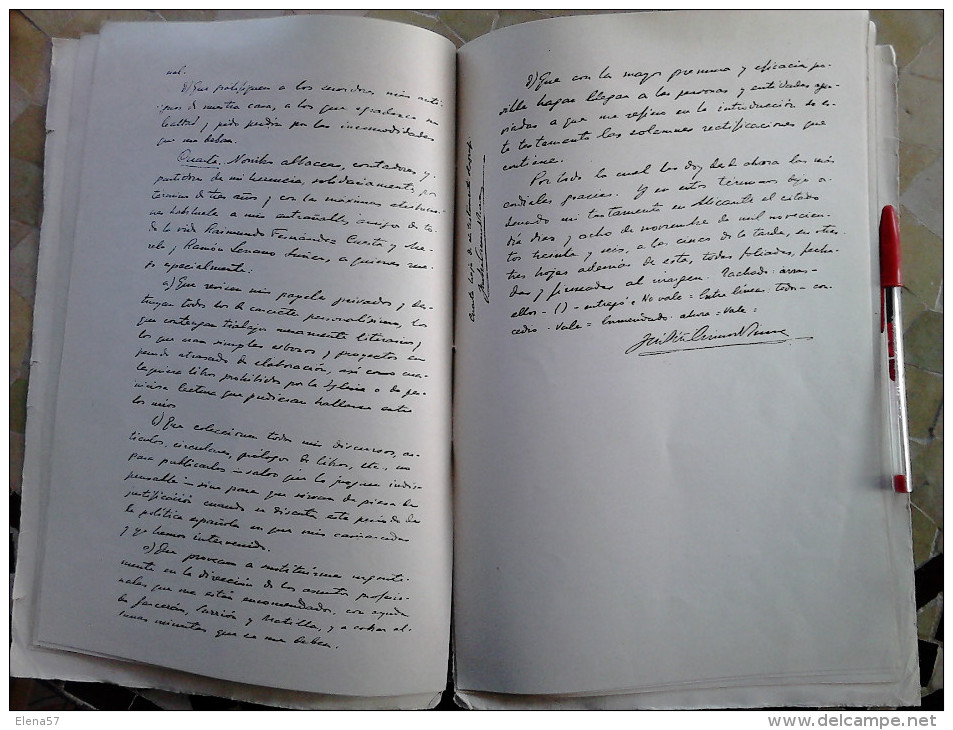 ual.
que me deban.
Cuarta. Nombro albaceas, contadores y
partidores de mi herencia, solidariamente, por
término de tres años y con las máximas atribucio-
nes habituales a mis entrañables amigos de to-
da la vida Raimundo Fernández Cuesta y Me-
relo y Ramón Serrano Suñer, a quienes rue-
go especialmente:
a) Que revisen mis papeles privados y des-
truyan todos los de carácter personalísimo, los
que contengan trabajos meramente literarios y
los que sean simples esbozos y proyectos en
período atrasado de elaboración, así como cua-
lquiera libros prohibidos por la Iglesia o de per-
niciosa lectura que pudieran hallarse entre
los míos
b) Que coleccionen todos mis discursos, ar-
tículos, circulares, prólogos de libros, etc., no
para publicarlos – salvo que lo juzguen indis-
pensable – sino para que sirvan de pieza de
justificación cuando se discuta este período de
la política española en que mis camaradas
y yo hemos intervenido.
c) Que provean a sustituirme urgente-
mente en la dirección de los asuntos profesio-
nales que me están encomendados, con ayuda
de Garcerán, Sarrión y Matilla, y a cobrar al-
gunas minutas que se me deben.
d) Que con la mayor premura y eficacia po-
sible hagan llegar a las personas y entidades agra-
viadas a que me refiero en la introducción de es-
te testamento las solemnes rectificaciones que
contiene.
Por todo lo cual les doy desde ahora las más
cordiales gracias. Y en estos términos dejo or-
denado mi testamento en Alicante el
día diez y ocho de noviembre de mil novecien-
tos treinta y seis, a las cinco de la tarde, en otras
tres hojas además de esta, todas foliadas, fecha-
das y firmadas al margen. Tachado:
entregó = No vale = Entre líneas: todo - con-
cedro - Vale = Enmendado: ahora = Vale =
Elena57
http://www.delcampe.net